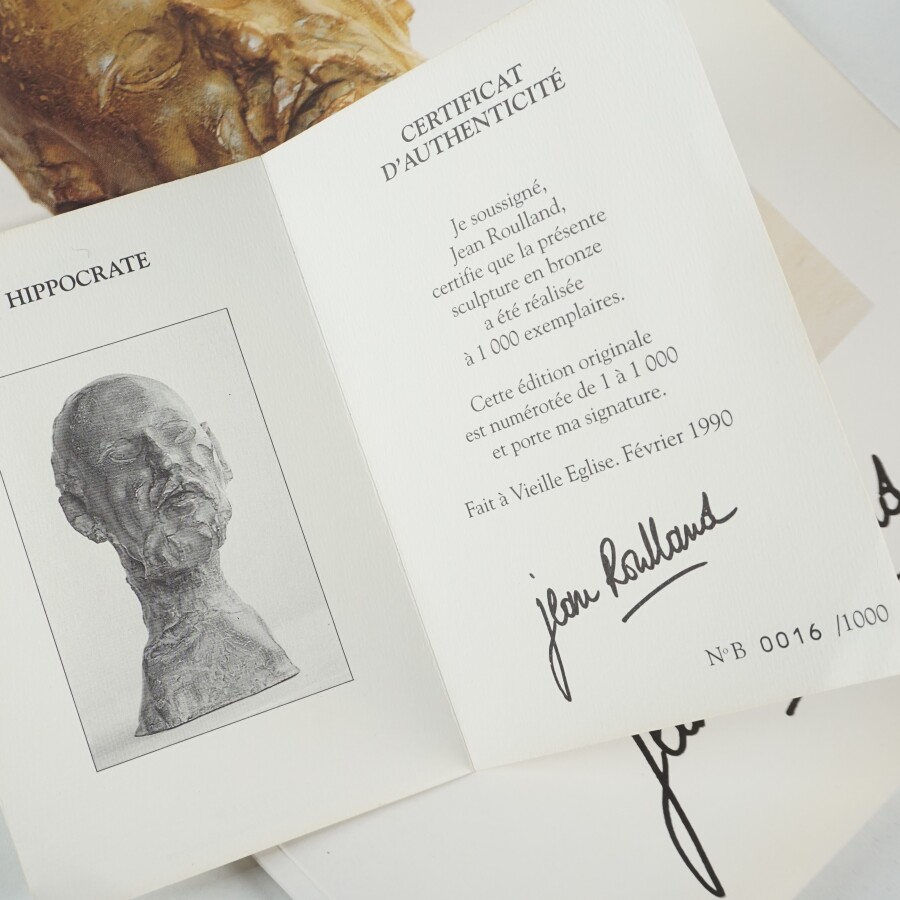 HIPPOCRATE
CERTIFICAT
D'AUTHENTICITÉ
Je soussigné,
Jean Roulland,
certifie que la présente
sculpture en bronze
a été réalisée
à 1 000 exemplaires.
Cette édition originale
est numérotée de 1 à 1 000
et porte ma signature.
Fait à Vieille Eglise. Février 1990
jean Roulland
N° B 0016 /1000